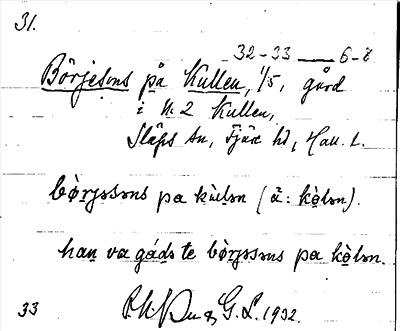 31.
32-33 — 6-8
Börjesons på Kullen, 1/5, gård
i N:2 Kullen,
Släps sn, Fjäre hd, Hall. l.
bòrjsəns pa kùlən (ä: kòlən).
han va gádste bòrjsəns pa kòlən.
33 & G. L. 1932.